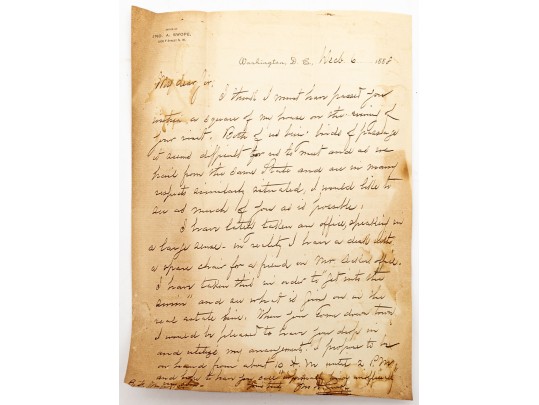 JNO. A. SWOPE,
Washington, D. C. Decb. 6 1888
My dear Sir,
I think I must have passed you
within a square of my house on the evening of
your visit. Both of us being birds of passage
it seems difficult for us to meet and as we
hail from the same State and are in many
respects similarly situated, I would like to
see as much of you as is possible.
I have lately taken an office, speaking in
a large sense - in reality I have a desk with
a spare chair for a friend in Mr. office.
I have taken this in order to "get into the
swim" and see what is going on in the
real estate line. When you come down town
I would be pleased to have you drop in
and utilize my arrangement. I propose to be
on hand from about 10 A.M. until 2 P.M.
and hope to have you call